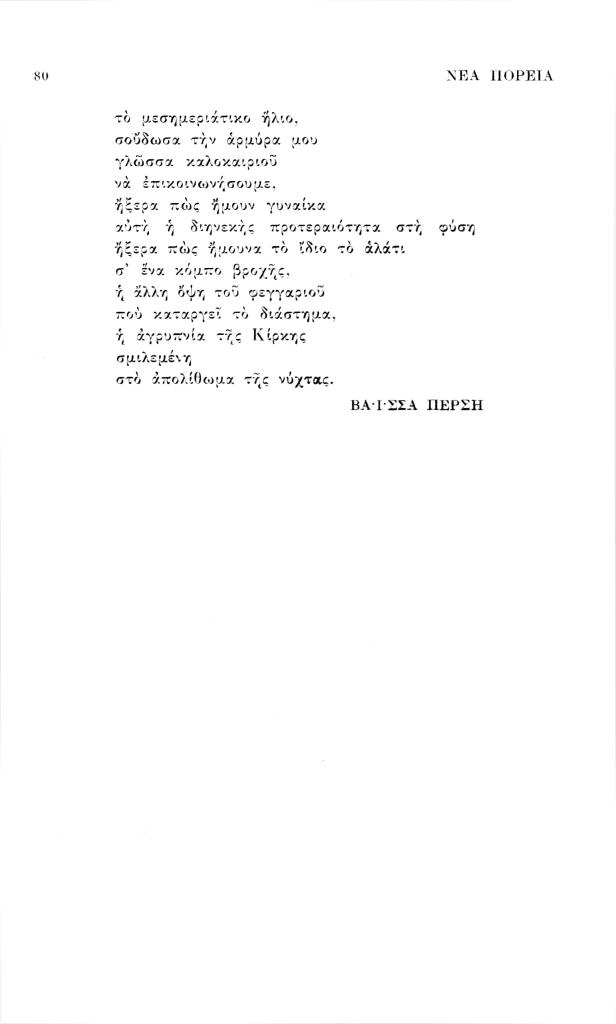 80 ΝΕΑ ΠΟΡΕΙΑ
τὸ μεσημεριάτικο ἥλιο,
σοὔδωσα τὴν ἁρμύρα μου
γλῶσσα καλοκαιριοῦ
νὰ ἐπικοινωνήσουμε,
ἤξερα πὼς ἤμουν γυναίκα
αὐτὴ ἡ διηνεκὴς προτεραιότητα στὴ φύση
ἤξερα πὼς ἤμουνα τὸ ἴδιο τὸ ἁλάτι
σ' ἕνα κόμπο βροχῆς,
ἡ ἄλλη ὄψη τοῦ φεγγαριοῦ
ποὺ καταργεῖ τὸ διάστημα,
ἡ ἀγρυπνία τῆς Κίρκης
σμιλεμένη
στὸ ἀπολίθωμα τῆς νύχτας.
ΒΑ·Ι·ΣΣΑ ΠΕΡΣΗ